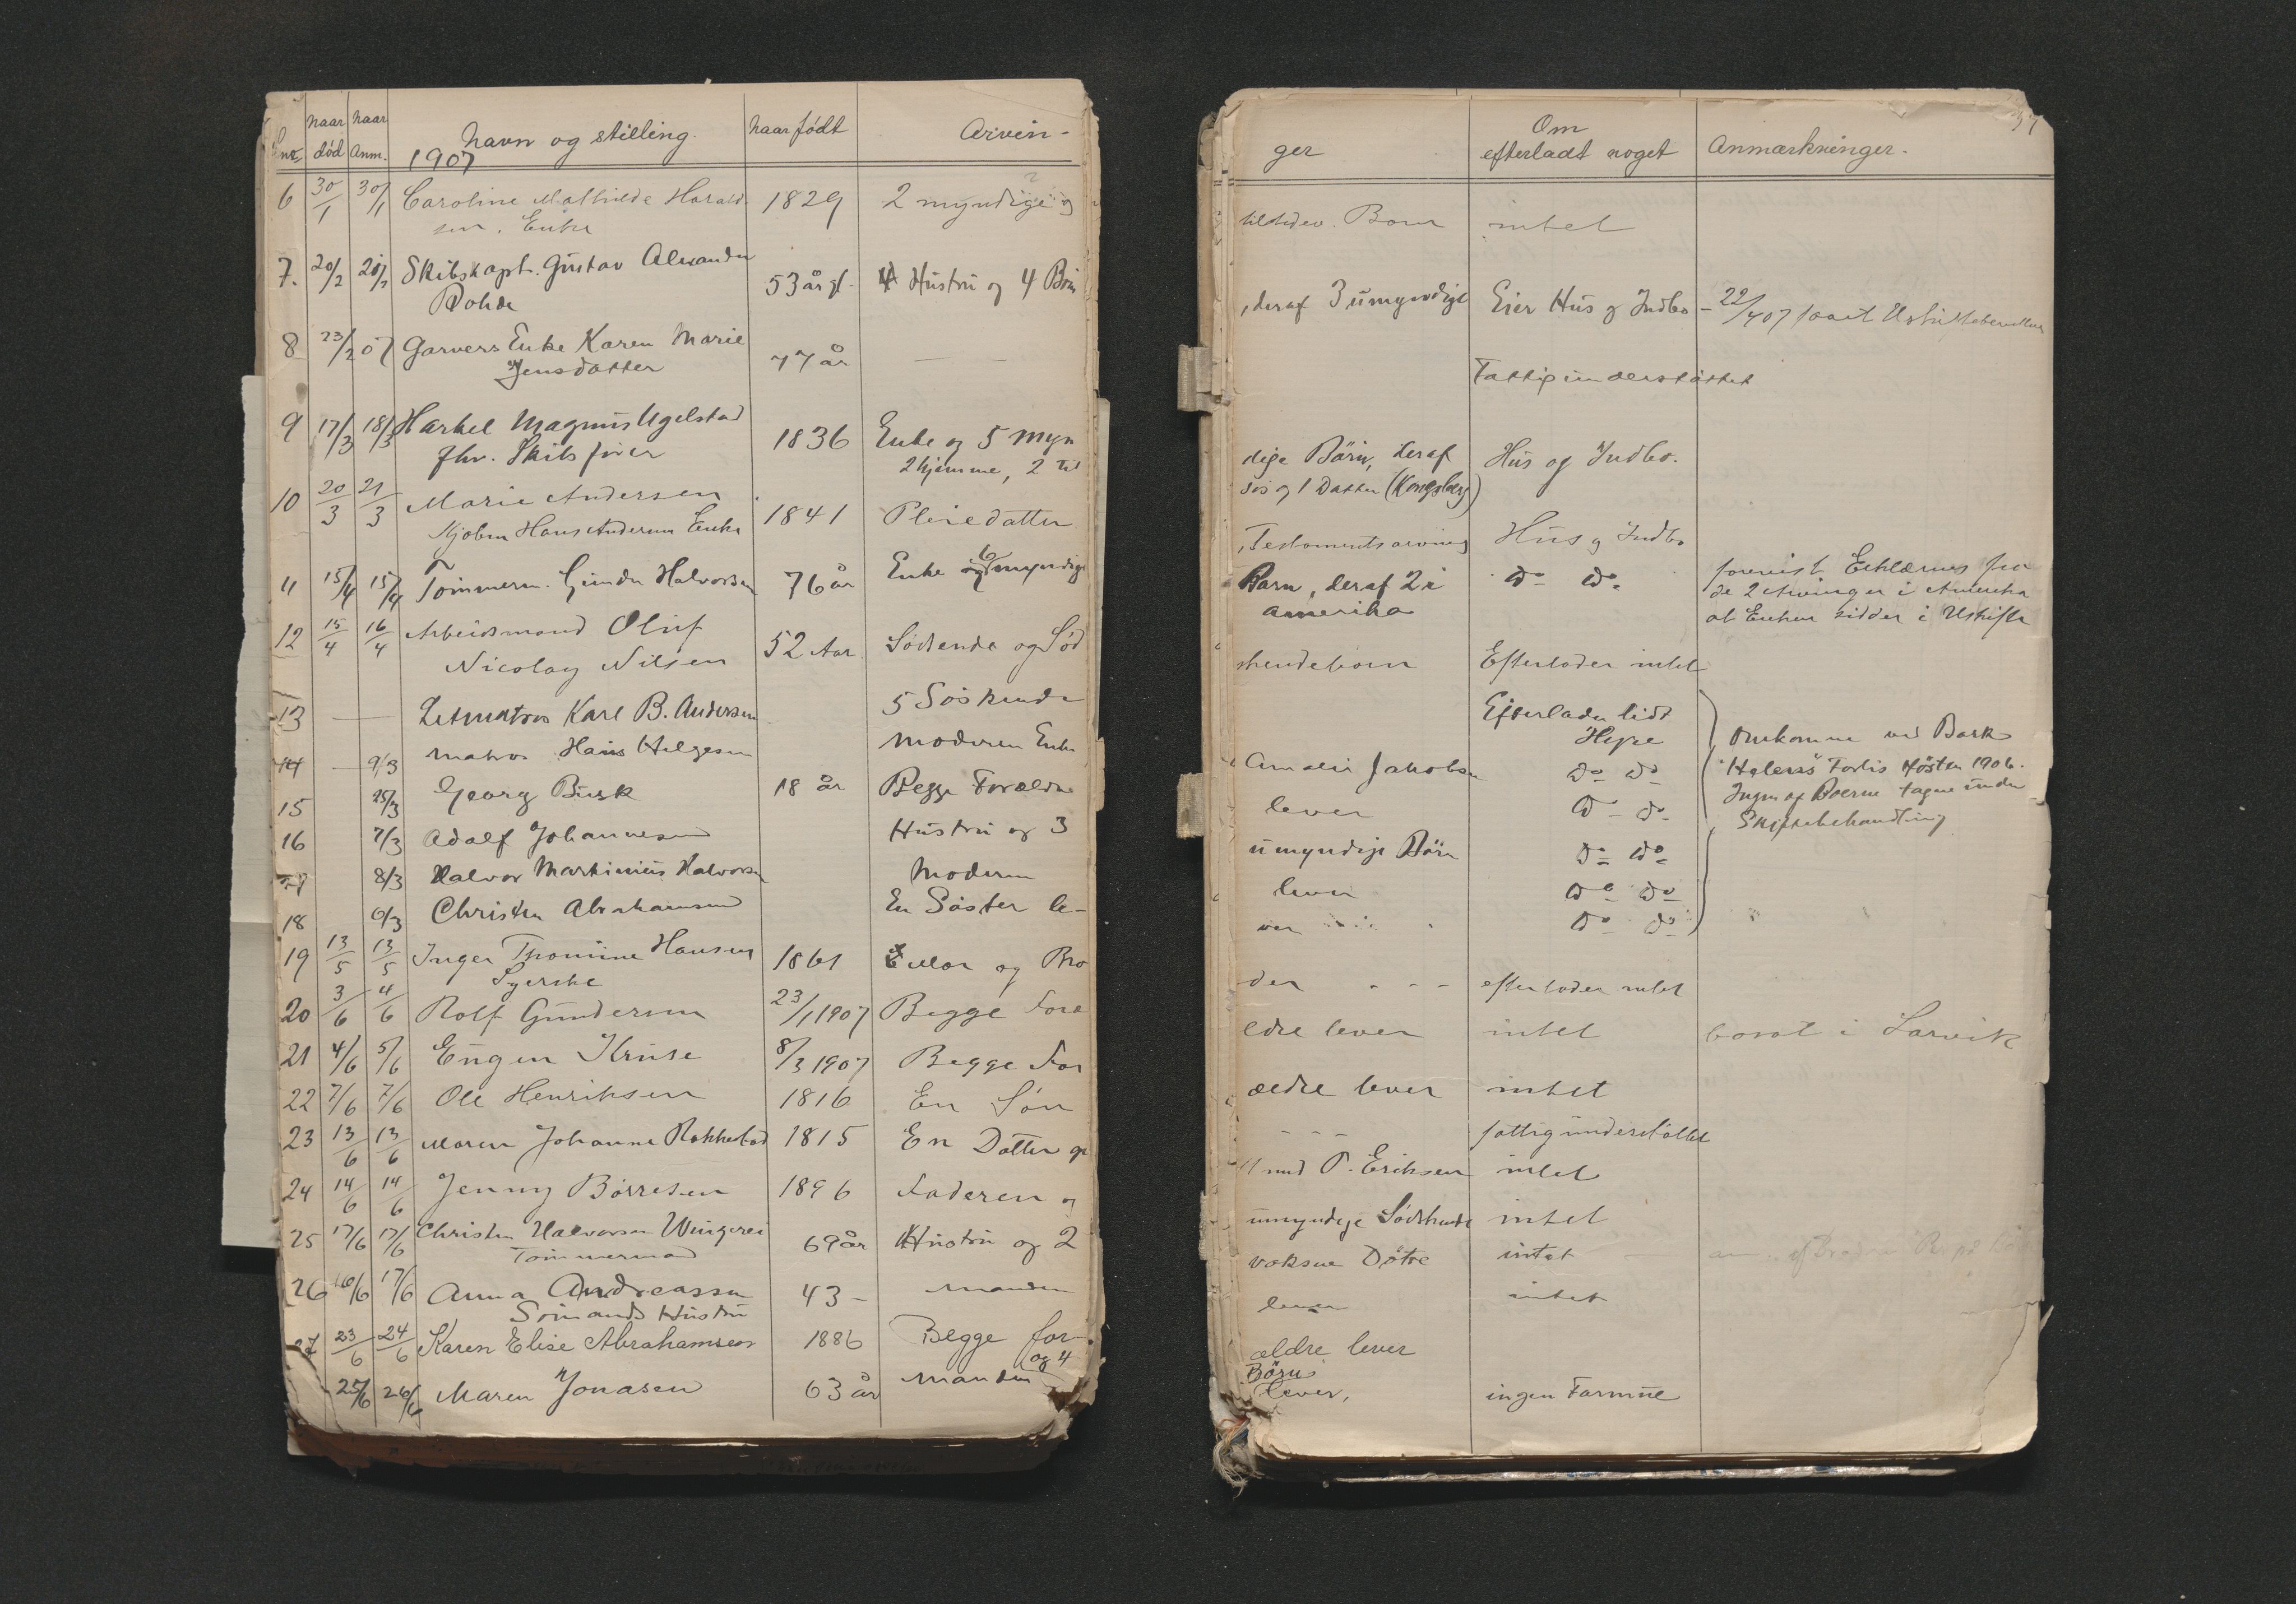 naar naar
Lnr. død Anm. Navn og stilling. naar født Arvin-
1907
6 30/1 30/1 Caroline Mathilde Harald 1829 2 myndige og
sen, Enke
7. 20/2 20/2 Skibskapt. Gustav Alexander
Rohde 53 år gl. Hustru og 4 Börn
8 23/2 07 Garvers Enke Karen Marie
Jensdatter 77 år —
9 17/3 18/3 Harkel Magnus Ugelstad 1836 Enke og 5 myn
fhv. Skibsfører 2 hjemme, 2 til
10 20/3 21/3 Marie Andersen 1841 Pleiedatter
Kjøbm Hans Andersens Enke
11 15/4 15/4 Tömmerm. Gunder Halvorsen 76 år Enke og 6 myndige
12 15/4 16/4 Arbeidsmand Oluf 52 Aar Södskende og Sød
Nicolay Nilsen
13 — Letmatros Karl B. Andersen 5 Söskende
14 — 9/3 matros Hans Helgesen Moderen Enke
15 25/3 Georg Busk 18 år Begge Forældre
16 7/3 Adolf Johannesen Hustru og 3
8/3 Halvor Martinius Halvorsen Moderen
18 6/3 Christen Abrahamsen En Söster le-
19 13/5 13/5 Inger Thomine Hansen 1861 Mor og Bro
Syerske
20 3/6 4/6 Rolf Gundersen 23/1 1907 Begge Foræ
21 4/6 5/6 Eugen Kruse 8/3 1907 Begge For
22 7/6 7/6 Ole Henriksen 1816 En Sön
23 13/6 13/6 Maren Johanne Rokkestad 1815 En Datter g
24 14/6 14/6 Jenny Börresen 1896 Faderen og
25 17/6 17/6 Christen Halvorsen Wingerei 69 år Hustru og 2
Tömmermand
26 16/6 17/6 Anna Andreassen 43 – Manden
Sömands Hustru
27 23/6 24/6 Karen Elise Abrahamsen 1886 Begge for-
25/6 26/6 Maren Jonasen 63 år Manden og 4
37
Om
ger efterladt noget Anmærkninger.
tilstedev. Børn intet
, deraf 3 umyndige Eier Hus og Indbo – 22/4 07 faaet Uskiftebevilling
Fattigunderstöttet
dige Börn, deraf Hus og Indbo.
sös og 1 Datter (Kongsberg)
, Testamentsarving Hus og Indbo
Barn, deraf 2 i Do Do. forevist Erklæring fra
Amerika de 2 Arvinger i Amerika
at Enken sidder i Uskifte
skendebørn Efterlader intet
Efterlader lidt
Hyre Omkomne ved Bark
Amalie Jakobsen Do Do "Heleros" Forlis Hösten 1906.
lever Do Do Ingen af Boerne tagne under
Skiftebehandling
umyndige Börn Do Do
lever Do Do
ver Do Do
der - - - efterlader intet
ældre lever intet bosat i Larvik
ældre lever intet
- - - fattigunderstöttet
med P. Eriksen intet
umyndige Södskende intet
voksne Døtre intet
lever intet
ældre lever
Börn
lever, ingen Formue